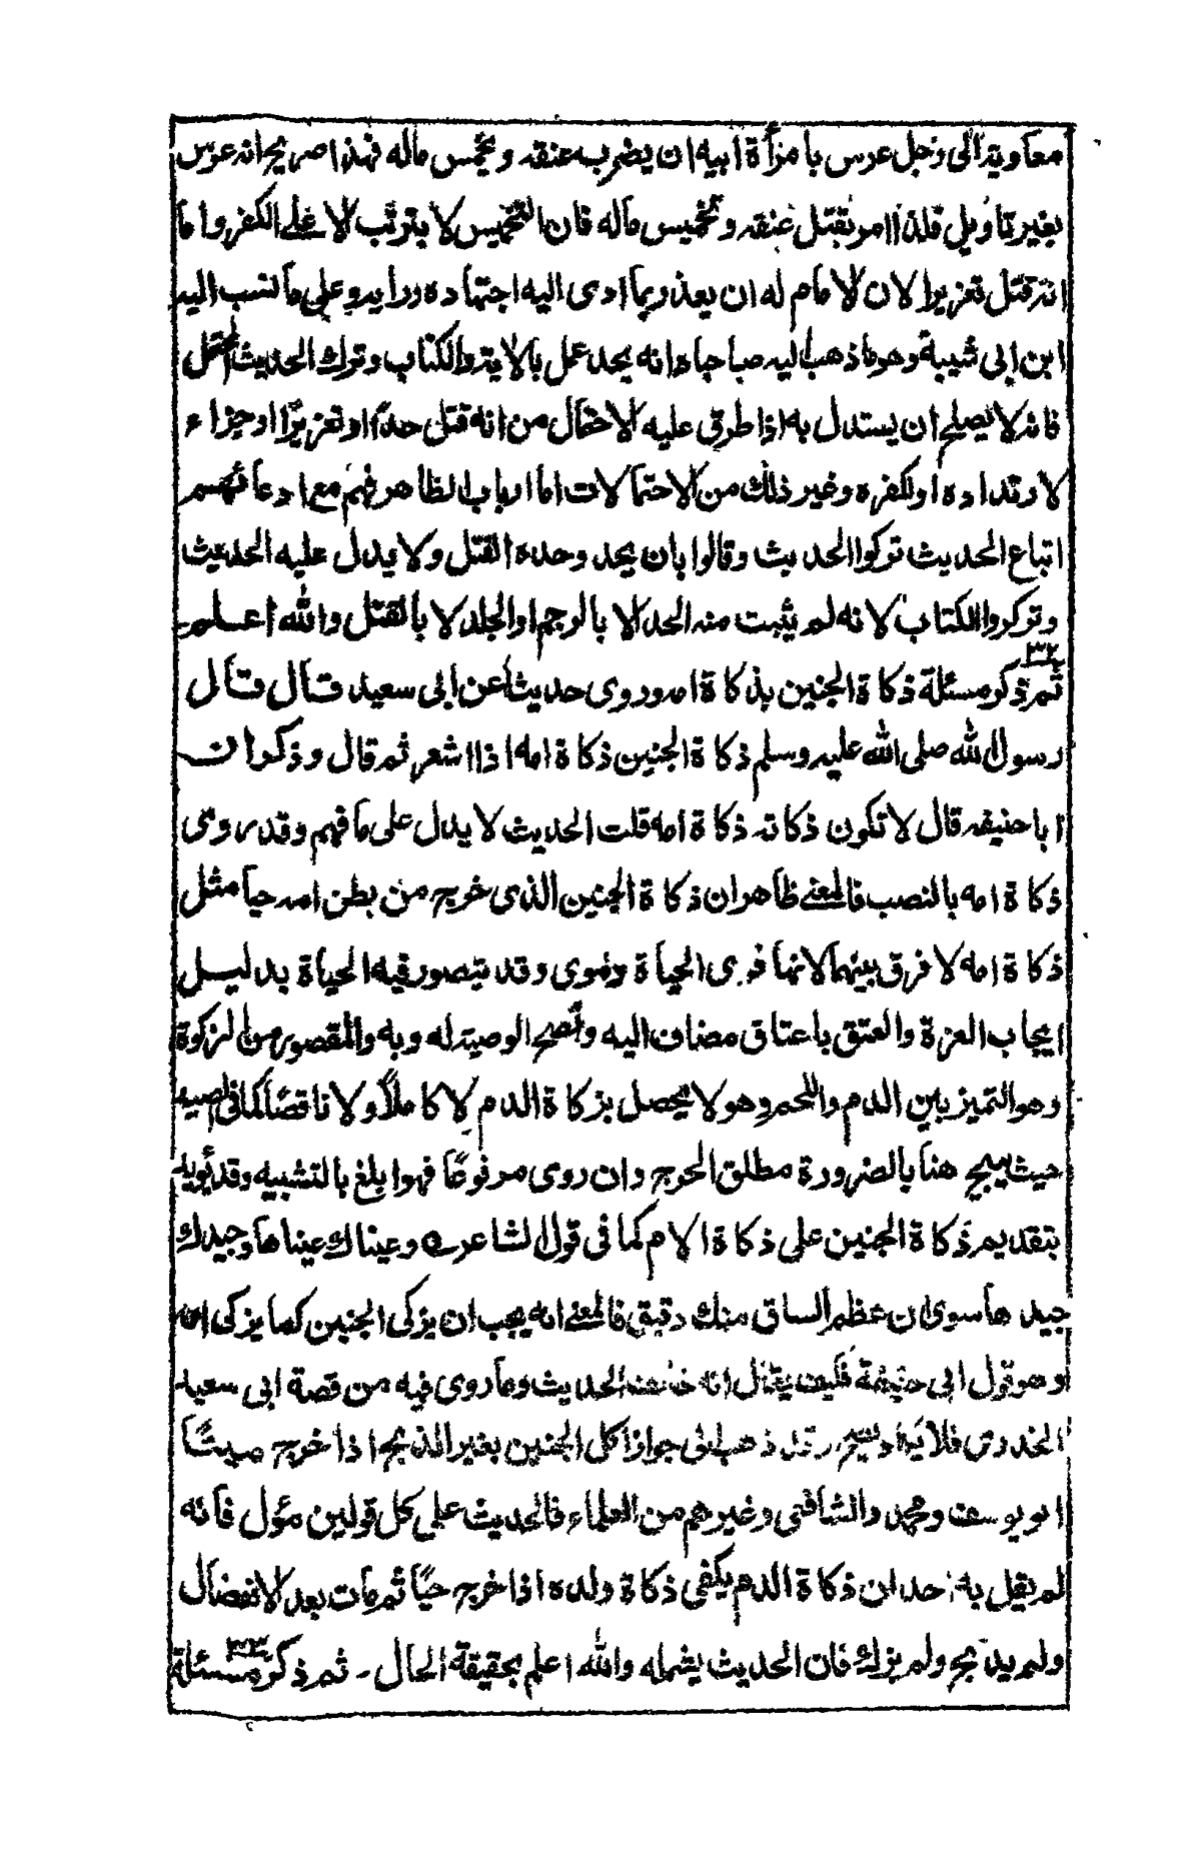 معاوية الى رجل عرس بامرأة ابيه ان يضرب عنقه ويخمس ماله فهذا صريح انه عرس
بغير تاويل فلذا امر بقتل عنقه وتخميس ماله فان التخميس لا يترتب الا على الكفر واما
انه قتل تعزيرا لان الامام له ان يعذر بما ادى اليه اجتهاده ورايه وعلى ما نسب اليه
ابن ابى شيبة وهو ما ذهب اليه صاحباه انه يحد عمل بالاية والكتاب وترك الحديث المحتمل
فانه لا يصلح ان يستدل به اذا طرق عليه الاحتمال من انه قتل حدا او تعزيرًا او جزاء
لارتداده او لكفره وغير ذلك من الاحتمالات اما ارباب الظاهر فهم مع ادعائهم
اتباع الحديث تركوا الحديث وقالوا بان يحد وحده القتل ولا يدل عليه الحديث
وتركوا الكتاب لانه لم يثبت منه الحد الا بالرجم او الجلد لا بالقتل والله اعلم
٣٢ ثم ذكر مسئلة ذكاة الجنين بذكاة امه وروى حديثا عن ابى سعيد قال قال
رسول الله صلى الله عليه وسلم ذكاة الجنين ذكاة امه اذا اشعر ثم قال وذكر ان
ابا حنيفه قال لا تكون ذكاته ذكاة امه قلت الحديث لا يدل على ما فهم وقد روى
ذكاة امه بالنصب فالمعنے ظاهر ان ذكاة الجنين الذى خرج من بطن امه حيا مثل
ذكاة امه لا فرق بينهما لانها فى الحياة وقد يتصور فيه الحياة بدليل
ايجاب الغرة والعتق باعتاق مضاف اليه وتصح الوصية له وبه والمقصود من الزكوة
وهو التميز بين الدم واللحم وهو لا يحصل بزكاة الدم لا كاملاً ولا ناقصًا كما فى الصيد
حيث يبيح هنا بالضرورة مطلق الجرح وان روى مرفوعًا فهو ابلغ بالتشبيه وقد يؤيد
بتقديم ذكاة الجنين على ذكاة الام كما فى قول الشاعر وعيناك عيناها وجيدك
جيدها سوى ان عظم الساق منك دقيق فالمعنے انه يجب ان يزكى الجنين كما يزكى امه
وهو قول ابى حنيفة فكيف يقال انه خالف الحديث وما روى فيه من قصة ابى سعيد
الخدرى فلا ذهب الى جواز اكل الجنين بغير الذبح اذا خرج ميتًا
ابو يوسف ومحمد والشافعى وغيرهم من العلماء فالحديث على كل قولين مؤل فانه
لم يقل به احد ان ذكاة الدم يكفى ذكاة ولده اذا خرج حيًا ثم مات بعد الانفصال
ولم يذبح ولم يزك فان الحديث يشمله والله اعلم بحقيقة الحال - ثم ذكر ٣٣ مسئلة